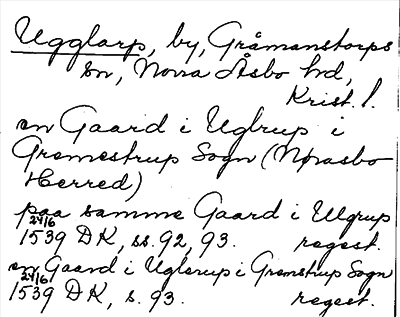 Ugglarp, by, Gråmanstorps
sn, Norra Åsbo hd,
Krist. l.
en Gaard i Ugtrup i
Gremestrup Sogn (Nørasbo
Herred)
paa samme Gaard i Ulgrup
24/6
1539 DK, ss. 92, 93. regest.
en Gaard i Uglerup i Gremstrup Sogn
24/6
1539 DK, s. 93. regest.